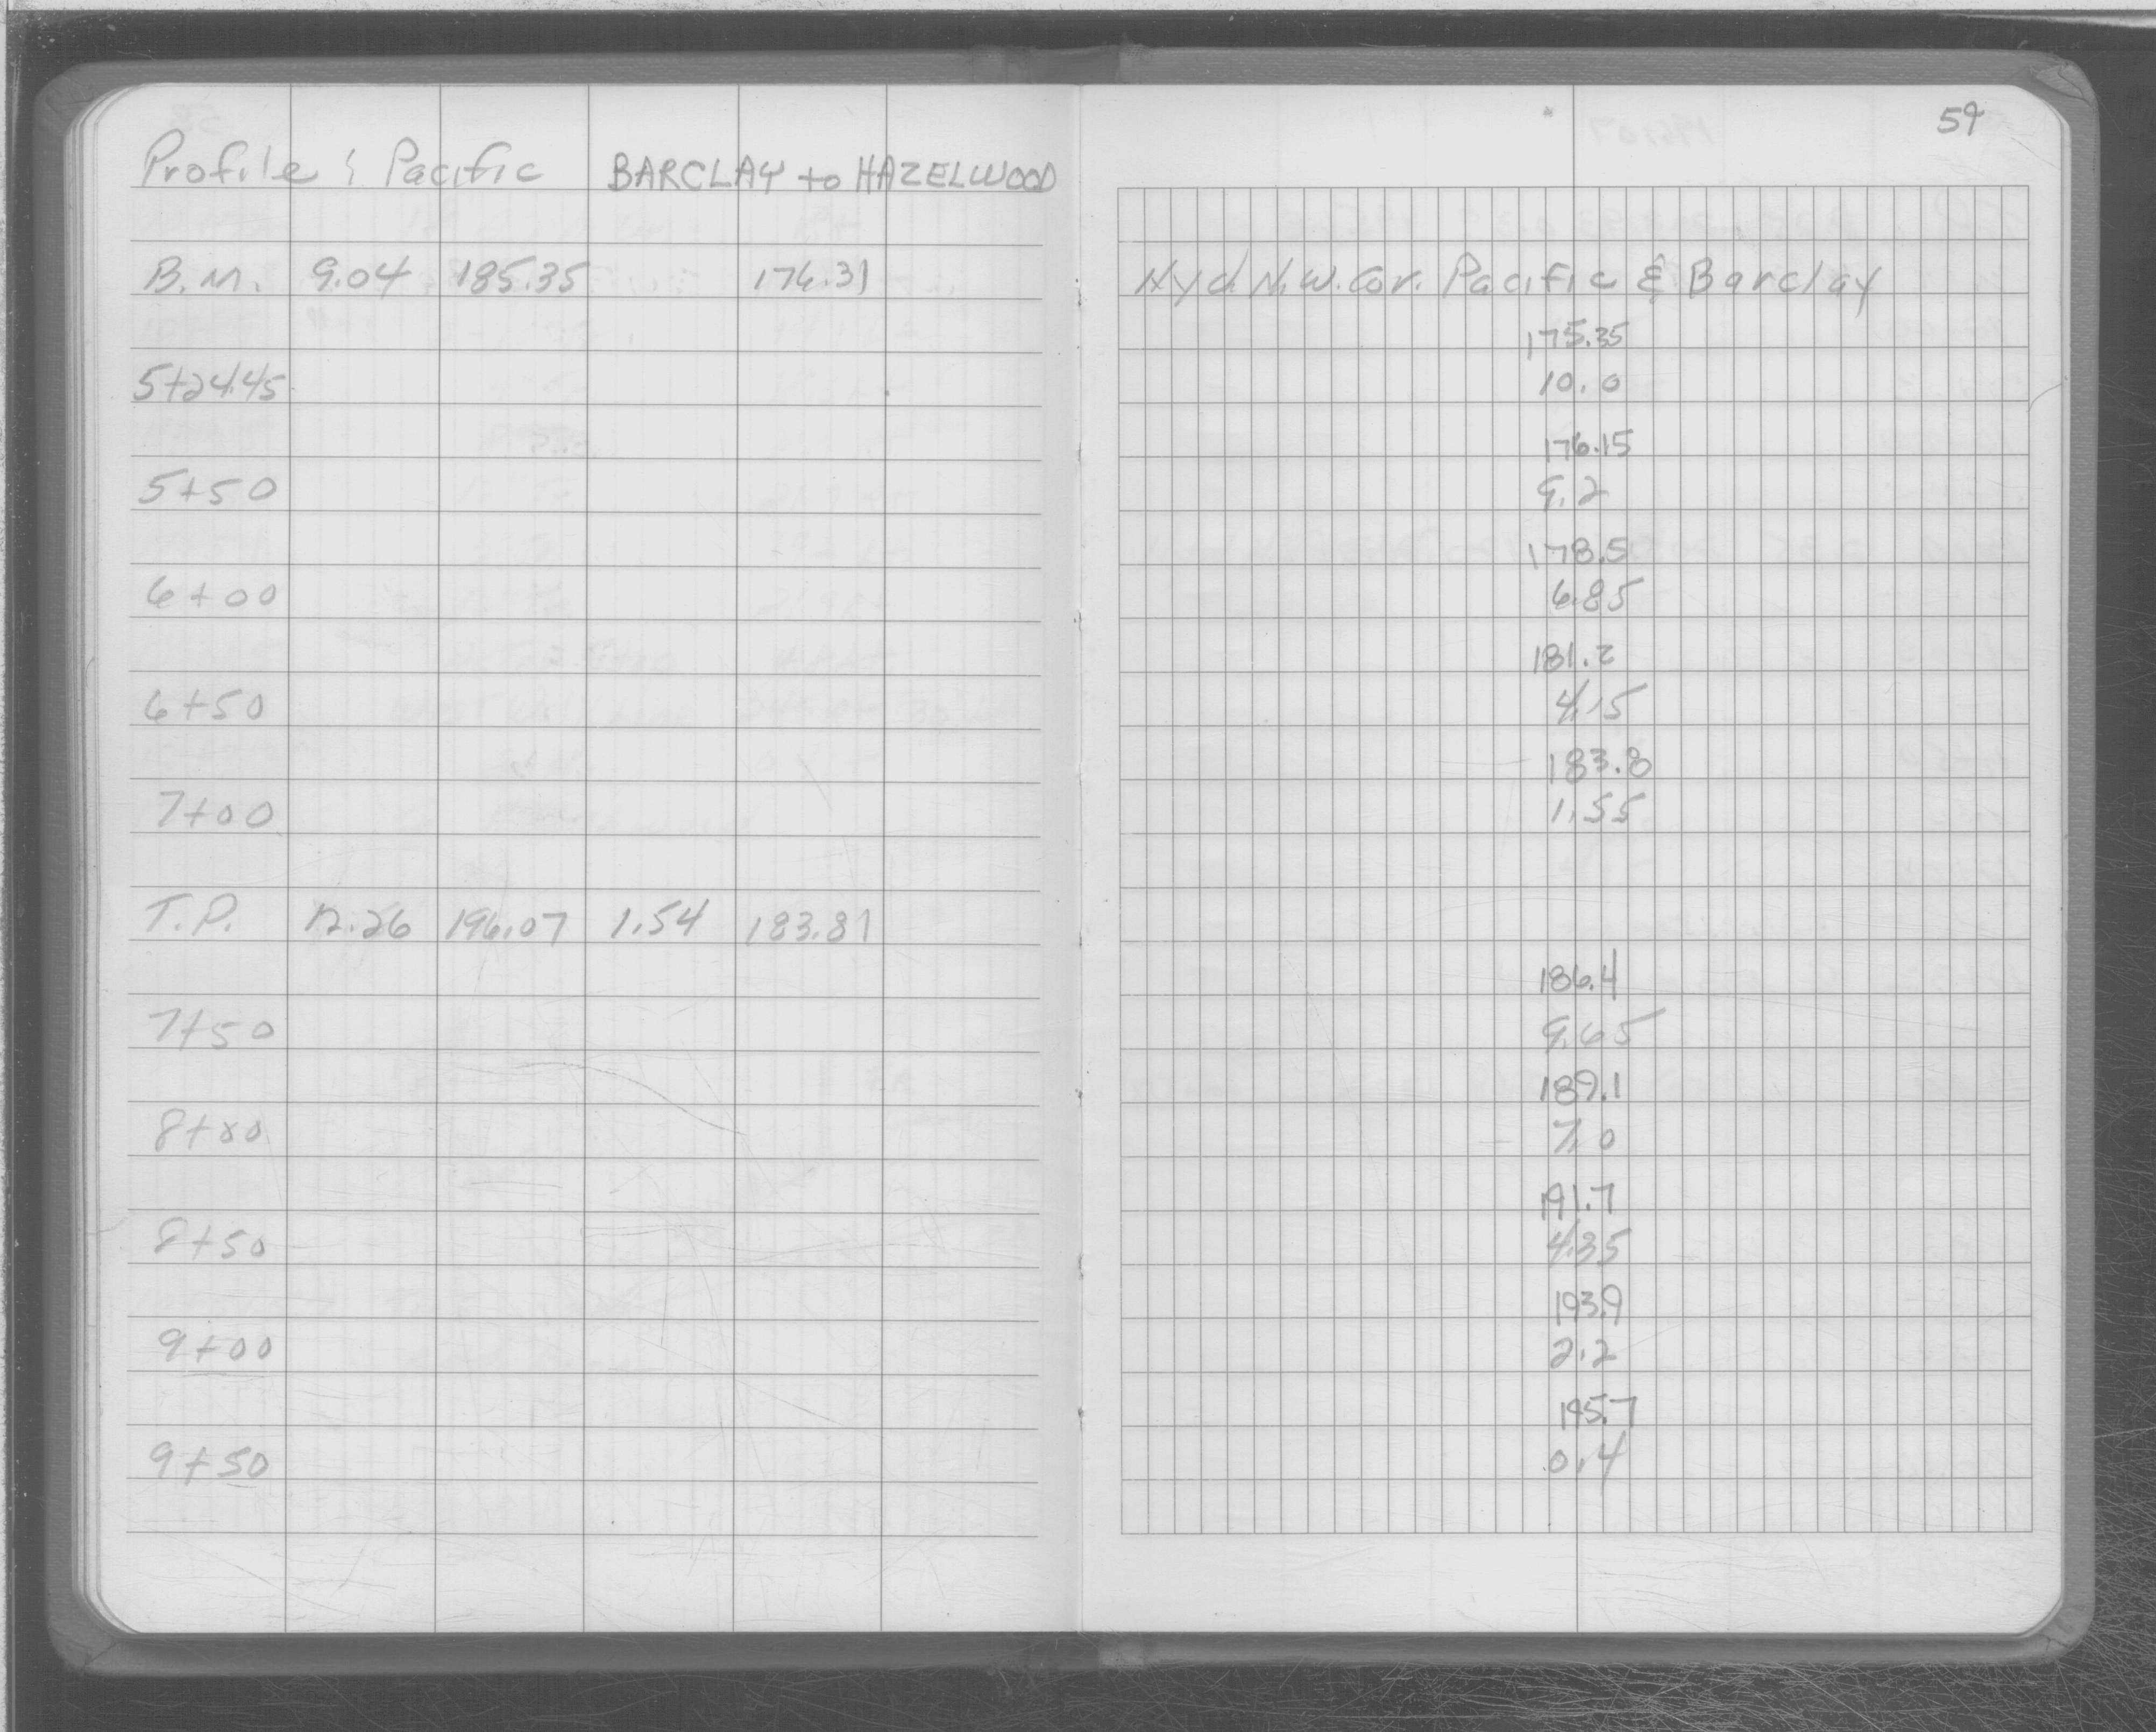 59
Profile ; Pacific BARCLAY to HAZELWOOD
B.M. 9.04 185.35 176.31 Hyd. N.W. Cor. Pacific & Barclay
175.35
5+24.45 10.0
176.15
5+50 9.2
178.5
6+00 6.85
181.2
6+50 4.15
183.8
7+00 1.55
T.P. 12.26 196.07 1.54 183.81
186.4
7+50 9.65
189.1
8+00 7.0
191.7
8+50 4.35
193.9
9+00 2.2
195.7
9+50 0.4